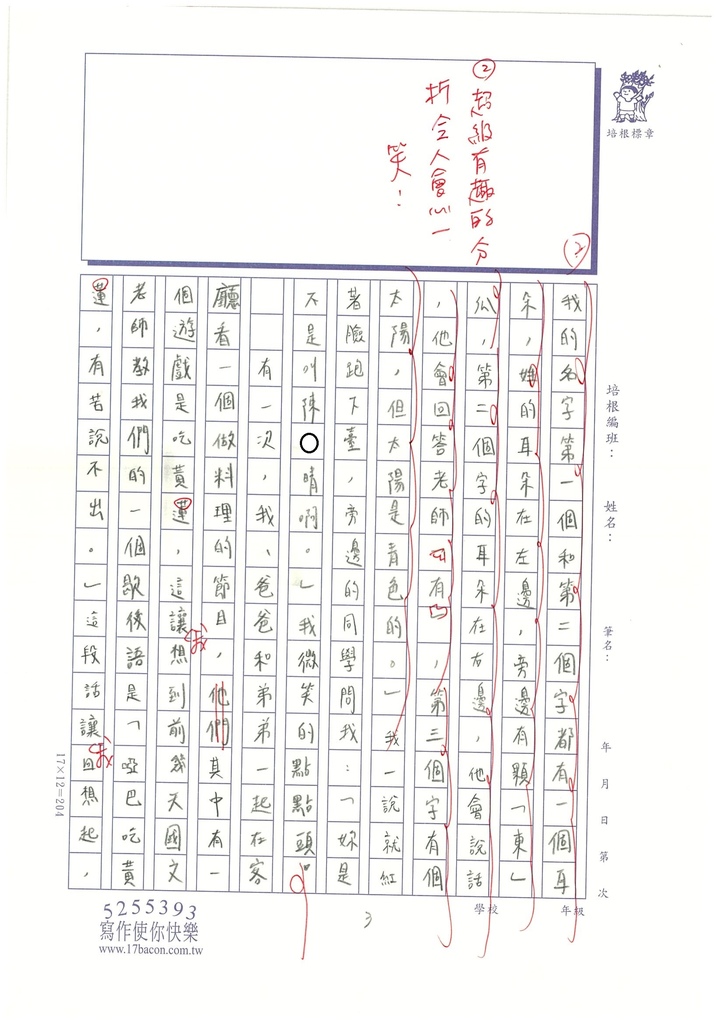 ②超級有趣的分
析令人會心一
笑!
培根標章
②
我的名字第一個和第二個字都有一個耳
朵,她的耳朵在左邊,旁邊有顆「東」
瓜,第二個字的耳朵在右邊,他會說話
,他會回答老師有,第三個字有個
太陽,但太陽是青色的。」我一說就紅
著臉跑下臺,旁邊的同學問我:「妳是
不是叫陳○晴啊。」我微笑的點點頭。
有一次,我、爸爸和弟弟一起在客
廳看一個做料理的節目,他們其中有一
個遊戲是吃黃蓮,這讓我想到前幾天國文
老師教我們的一個歇後語是「啞巴吃黃
蓮,有苦說不出。」這段話讓我回想起,
培根編班:
姓名:
筆名:
年 月 日 第 次
學校
年級
17×12=204
5255393
寫作使你快樂
www.17bacon.com.tw
3